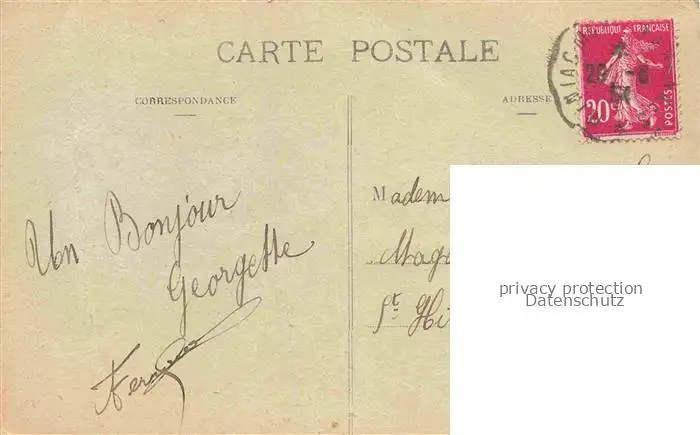 CARTE POSTALE
CORRESPONDANCE
ADRESSE
REPUBLIQUE FRANÇAISE
20c
POSTES
Un Bonjour
Georgette
Madem
Mag
St Hi
privacy protection
Datenschutz